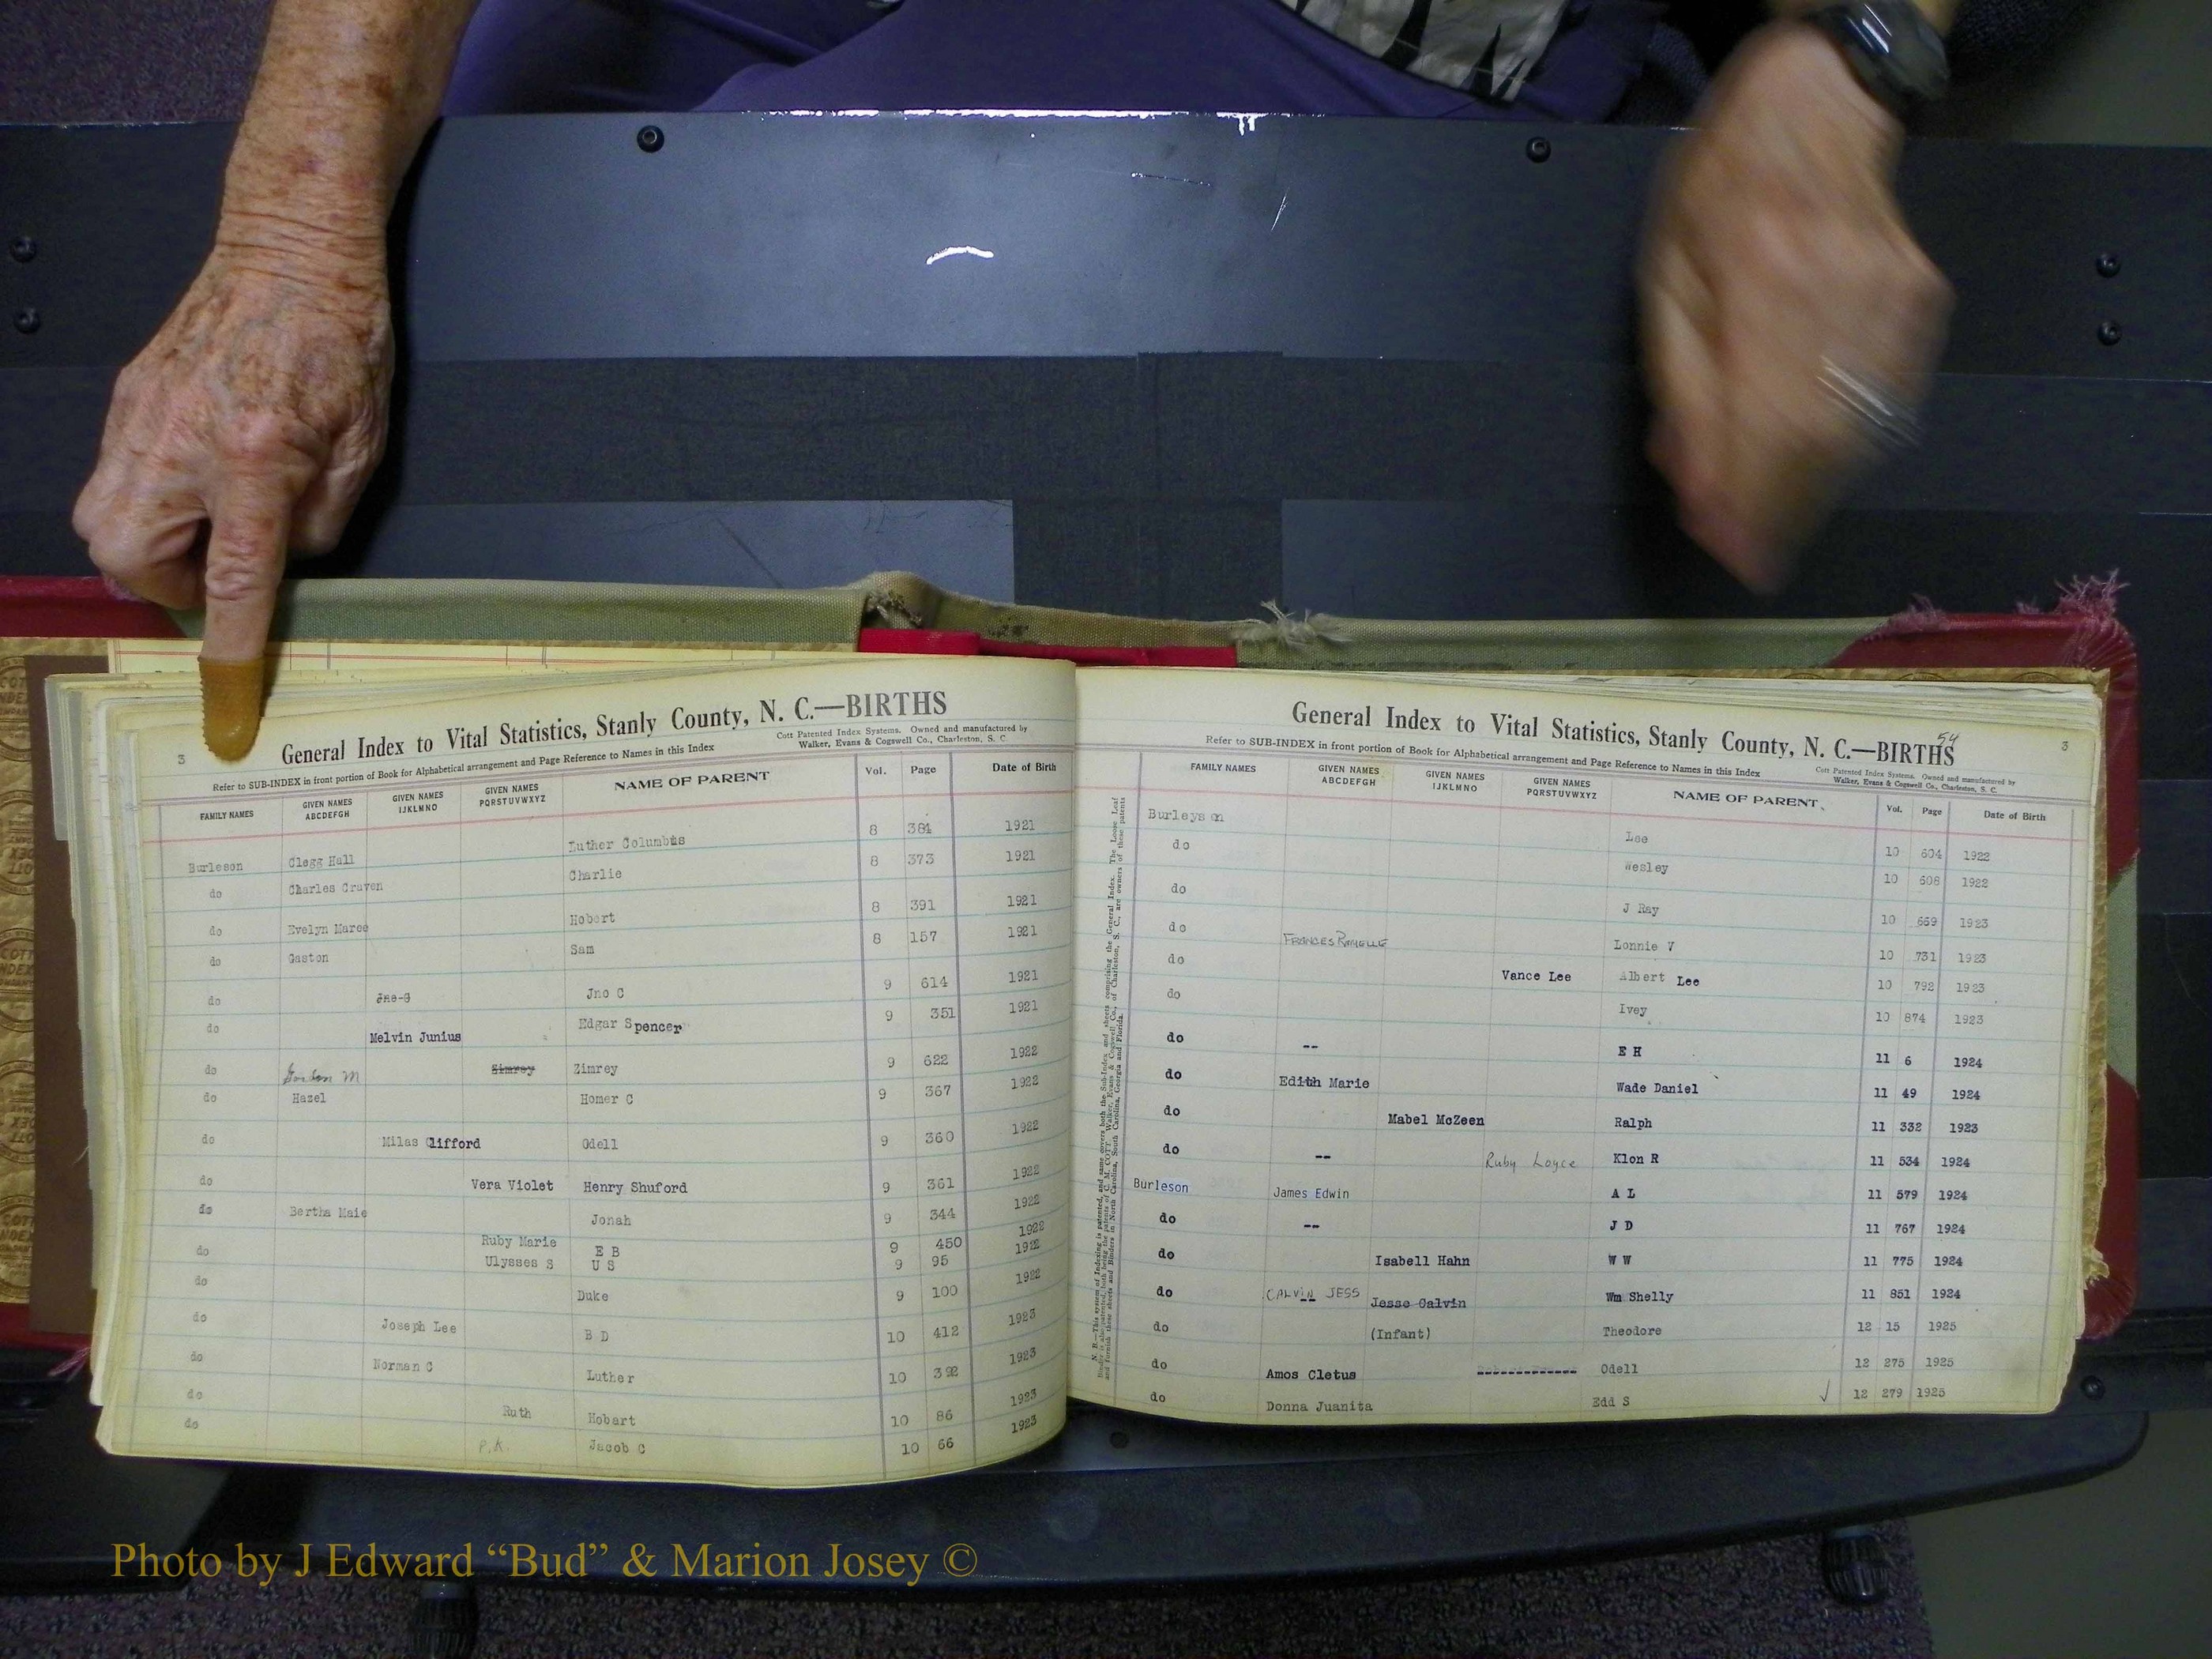 3
General Index to Vital Statistics, Stanly County, N. C.—BIRTHS
Refer to SUB-INDEX in front portion of Book for Alphabetical arrangement and Page Reference to Names in this Index
Cott Patented Index Systems. Owned and manufactured by
Walker, Evans & Cogswell Co., Charleston, S. C
FAMILY NAMES GIVEN NAMES ABCDEFGH GIVEN NAMES IJKLMNO GIVEN NAMES PQRSTUVWXYZ NAME OF PARENT Vol. Page Date of Birth
Burleson Clegg Hall Luther Columbus 8 384 1921
do Charles Craven Charlie 8 373 1921
do Evelyn Maree Hobert 8 391 1921
do Gaston Sam 8 157 1921
do Jno C Jno C 9 614 1921
do Melvin Junius Edgar Spencer 9 351 1921
do Gordon M Zimrey Zimrey 9 622 1922
do Hazel Homer C 9 367 1922
do Milas Clifford Odell 9 360 1922
do Vera Violet Henry Shuford 9 361 1922
do Bertha Maie Jonah 9 344 1922
do Ruby Marie E B 9 450 1922
Ulysses S U S 9 95 1922
do Duke 9 100 1922
do Joseph Lee B D 10 412 1923
do Norman C Luther 10 392 1923
do Ruth Hobart 10 86 1923
do P.K. Jacob C 10 66 1923
General Index to Vital Statistics, Stanly County, N. C.—BIRTHS
54
3
Refer to SUB-INDEX in front portion of Book for Alphabetical arrangement and Page Reference to Names in this Index
Cott Patented Index Systems. Owned and manufactured by
Walker, Evans & Cogswell Co., Charleston, S. C.
FAMILY NAMES GIVEN NAMES ABCDEFGH GIVEN NAMES IJKLMNO GIVEN NAMES PQRSTUVWXYZ NAME OF PARENT Vol. Page Date of Birth
Burleyson Lee 10 604 1922
do Wesley 10 608 1922
do J Ray 10 669 1923
do FRANCES Lonnie V 10 731 1923
do Vance Lee Albert Lee 10 792 1923
do Ivey 10 874 1923
do -- E H 11 6 1924
do Edith Marie Wade Daniel 11 49 1924
do Mabel McZeen Ralph 11 332 1923
do -- Ruby Loyce Klon R 11 534 1924
Burleson James Edwin A L 11 579 1924
do -- J D 11 767 1924
do Isabell Hahn W W 11 775 1924
do CALVIN JESS Jesse Calvin Wm Shelly 11 851 1924
do (Infant) Theodore 12 15 1925
do Amos Cletus Odell 12 275 1925
do Donna Juanita Edd S √ 12 279 1925
Photo by J Edward “Bud” & Marion Josey ©